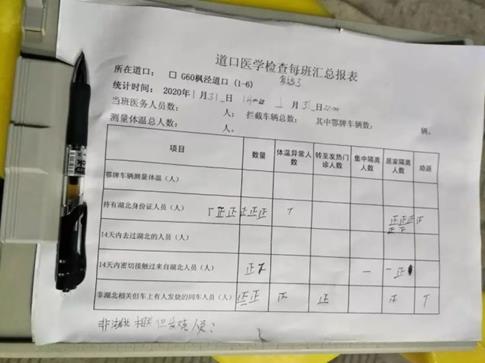 道口医学检查每班汇总报表
所在道口: □ G60枫泾道口 (1-6)
统计时间: 2020年1月31日 1月31日
当班医务人员数: 人; 拦截车辆总数: 其中鄂牌车辆数: 辆。
测量体温总人数: 人。
项目 数量 体温异常人数 转至发热门诊人数 集中隔离人数 居家隔离人数 劝返
鄂牌车辆测量体温(人)
持有湖北身份证人员(人) 正正正正正
14天内去过湖北的人员(人)
14天内密切接触过来自湖北人员(人) 正 一 一正
非湖北相关但车上有人发烧的同车人员(人) 正正 正
非湖北相关